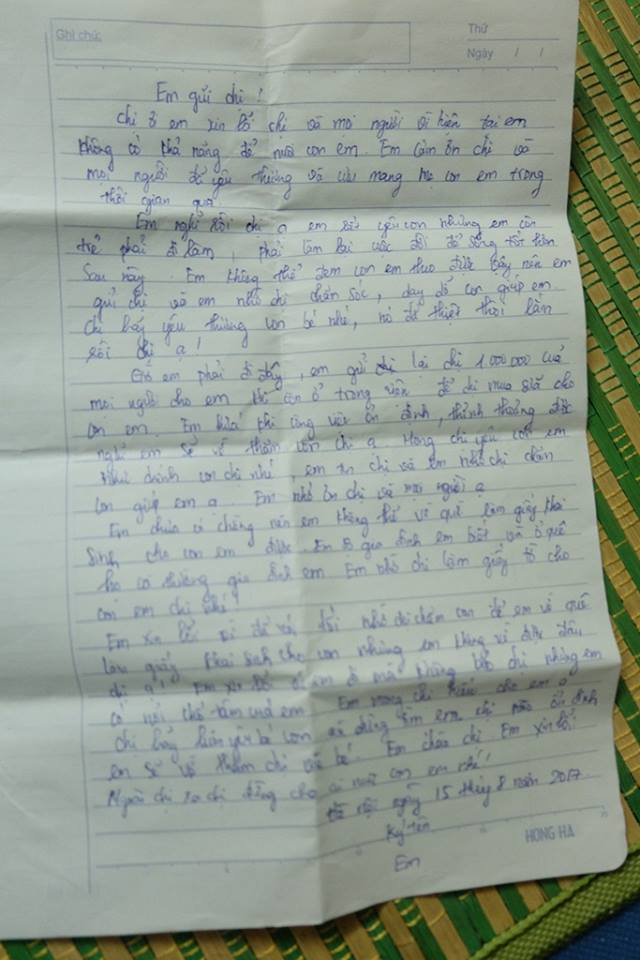 Ghi chú:
Thứ
Ngày / /
Em gửi chị!
Chị ơi em xin lỗi chị và mọi người vì hiện tại em
không có khả năng để nuôi con em. Em cảm ơn chị và
mọi người đã yêu thương và cưu mang mẹ con em trong
thời gian qua
Em nghĩ rồi chị ạ em rất yêu con nhưng em còn
trẻ phải đi làm, phải làm lại cuộc đời để sống tốt hơn
sau này. Em không thể đem con em theo được nên em
gửi chị và em nhờ chị chăm sóc, dạy dỗ con giúp em
chị hãy yêu thương con bé nhé, nó đã thiệt thòi lắm
rồi chị ạ!
Giờ em phải đi đây, em gửi lại chị 1.000.000 của
mọi người cho em khi còn ở trong viện để chị mua sữa cho
con em. Em hứa khi công việc ổn định, thỉnh thoảng được
nghỉ em sẽ về thăm con chị ạ. Mong chị yêu con em
như chính con chị nhé, em tin chị và em nhờ chị chăm
con giúp em ạ. Em nhớ ơn chị và mọi người ạ
Em chưa có chồng nên em không thể về quê làm giấy khai
sinh cho con em được. Em sợ gia đình em biết và ở quê
họ gia đình em. Em nhờ chị làm giấy tờ cho
con em chị nhé!
Em xin lỗi vì đã nói dối nhờ chị chăm con để em về quê
làm giấy khai sinh cho con nhưng em không về được đâu
chị ạ! Em xin lỗi vì em đi mà không báo chị nhưng em
có nỗi khổ tâm của em. Em mong chị hiểu cho em ạ
chị hãy bé con và đừng tìm em, khi nào ổn định
em sẽ về thăm chị với bé. Em chào chị. Em xin lỗi
Ngoài chị ra chị đừng cho ai nuôi con em nhé!
Hà Nội ngày 15 tháng 8 năm 2017.
Ký tên
Em
HONG HA